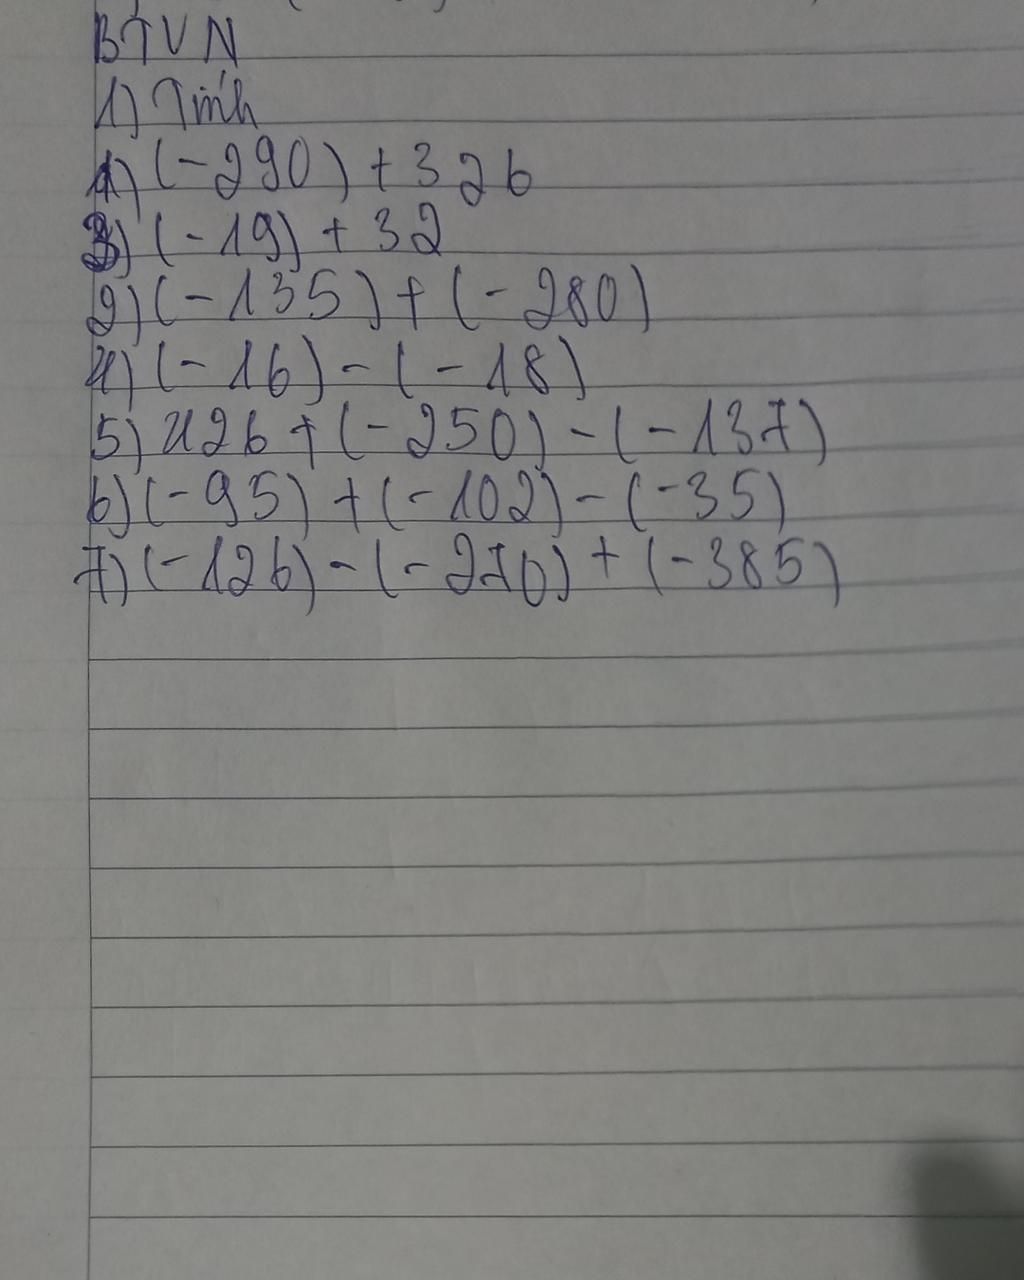 BTVN
1) Tính
1) (-290) + 326
3) (-19) + 32
2) (-135) + (-280)
4) (-16) - (-18)
5) 426 + (-250) - (-137)
6) (-95) + (-102) - (-35)
7) (-126) - (-270) + (-385)